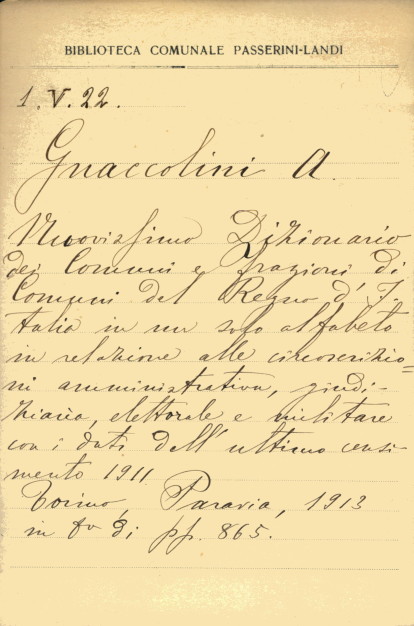 BIBLIOTECA COMUNALE PASSERINI-LANDI
1. V. 22.
Gnaccolini A.
Nuovissimo Dizionario
dei Comuni e frazioni di
Comuni del Regno d' I-
talia in un solo alfabeto
in relazione alle circoscrizio=
ni amministrativa, giudi-
ziaria, elettorale e militare
con i dati dell' ultimo censi-
mento 1911
Torino, Paravia, 1913
in 8º di pp. 865.